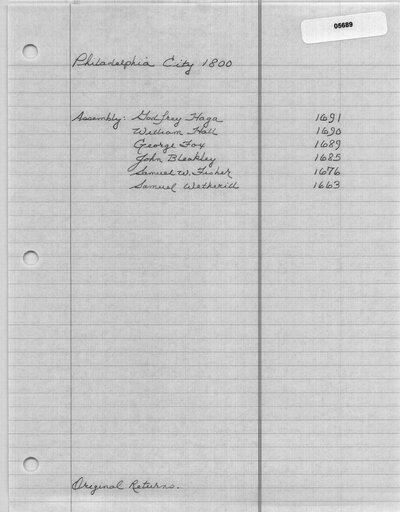 05689
Philadelphia City 1800
Assembly: Godfrey Haga 1691
William Hall 1690
George Fox 1689
John Bleakley 1685
Samuel W. Fisher 1676
Samuel Wetherill 1663
Original Returns.